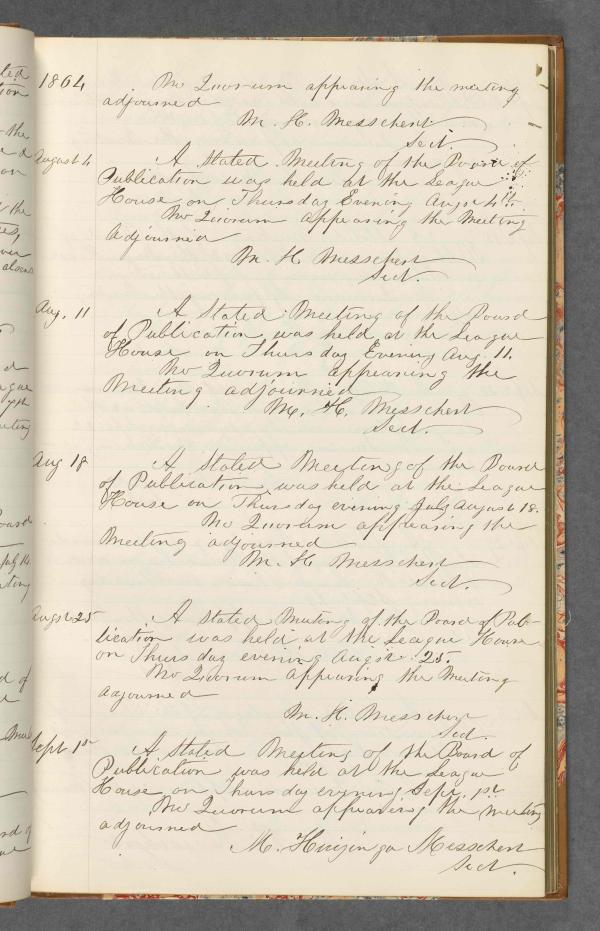 1864
No Quorum appearing the meeting
adjourned
M. H. Messchert
Sect.
August 4
A Stated Meeting of the Board of
Publication was held at the League
House on Thursday Evening Augst 4th.
No Quorum appearing the Meeting
Adjourned
M. H. Messchert
Sect.
Aug. 11
A Stated Meeting of the Board
of Publication was held at the League
House on Thursday Evening Aug. 11.
No Quorum appearing the
Meeting adjourned
M. H. Messchert
Sect.
Aug 18
A Stated Meeting of the Board
of Publication was held at the League
House on Thursday evening July August 18.
No Quorum appearing the
Meeting adjourned
M. H. Messchert
Sect.
Augst 25
A Stated Meeting of the Board of Pub-
lication was held at the League House
on Thursday evening Augst. 25.
No Quorum appearing the Meeting
adjourned
M. H. Messchert
Sect.
Sept 1st
A Stated Meeting of the Board of
Publication was held at the League
House on Thursday evening Sept. 1st
No Quorum appearing the Meeting
adjourned
M. Huizinga Messchert
Sect.